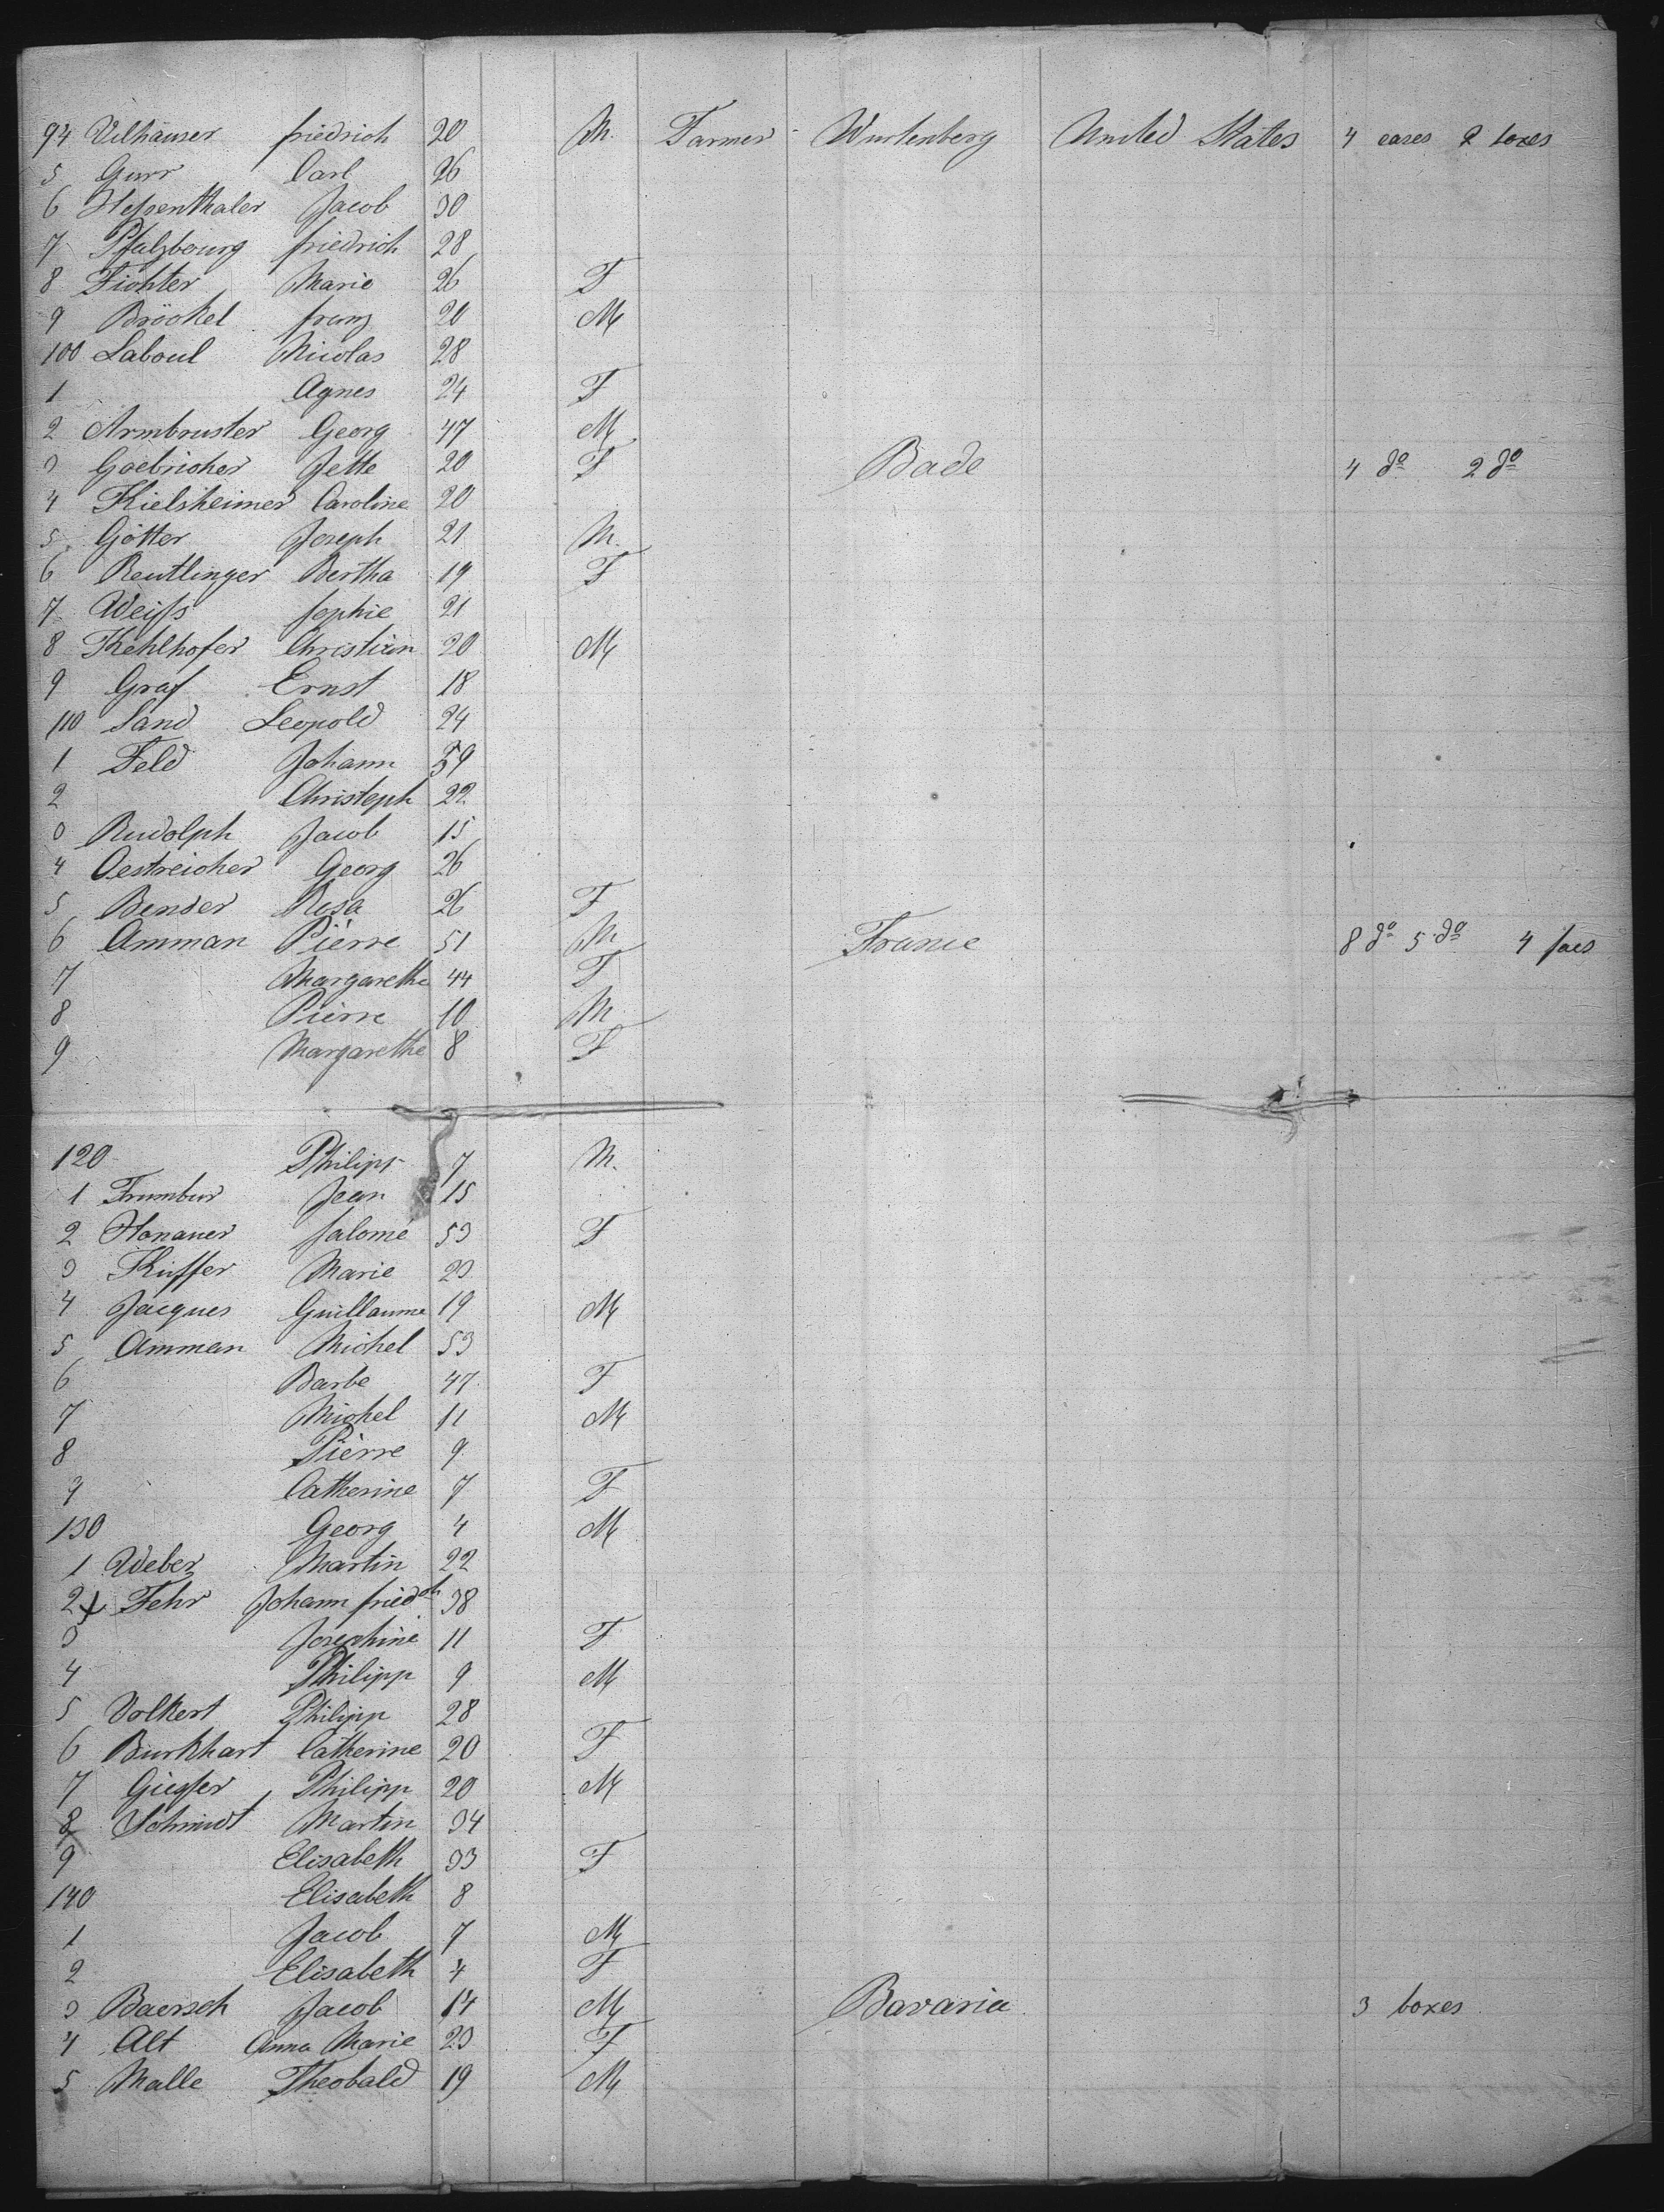 94 Vilhäuser friedrich 20 M. Farmer Wurtenberg United States 4 cases 2 boxes
5 Gurr Carl 26
6 Hessenthaler Jacob 30
7 Pfalzbourg friedrich 28
8 Fichter Marie 26 F
9 Bröckel franz 20 M
100 Laboul Nicolas 28
1 Agnes 24 F
2 Armbruster Georg 47 M
3 Goebricher Jette 20 F Bade 4 do 2 do
4 Kielsheimer Caroline 20
5 Götter Joseph 21 M.
6 Reutlinger Bertha 19 F
7 Weifs Sophie 21
8 Kehlhofer Christian 20 M
9 Graf Ernst 18
110 Sand Leopold 24
1 Feld Johann 59
2 Christoph 22
3 Rudolph Jacob 15
4 Oestreicher Georg 26
5 Bender Rosa 26 F
6 Amman Pierre 51 M France 8 do 5 do 4 sacs
7 Margarethe 44 F
8 Pierre 10 M
9 Margarethe 8 F
120 Philipp 7 M.
1 Frumbur Jean 15
2 Hanauer Salomé 53 F
3 Kuffer Marie 23
4 Jacques Guillaume 19 M
5 Amman Michel 53
6 Barbe 47 F
7 Michel 11 M
8 Pierre 9
9 Catherine 7 F
130 Georg 4 M
1 Weber Martin 22
2 x Fehr Johann friedch 38
3 Josephine 11 F
4 Philipp 9 M
5 Volkert Philipp 28
6 Burkhart Catherine 20 F
7 Philipp 20 M
8 Schmidt Martin 34
9 Elisabeth 33 F
140 Elisabeth 8
1 Jacob 7 M
2 Elisabeth 4 F
3 Baersch Jacob 14 M Bavaria 3 boxes
4 Alt Anna Marie 23 F
5 Malle Theobald 19 M